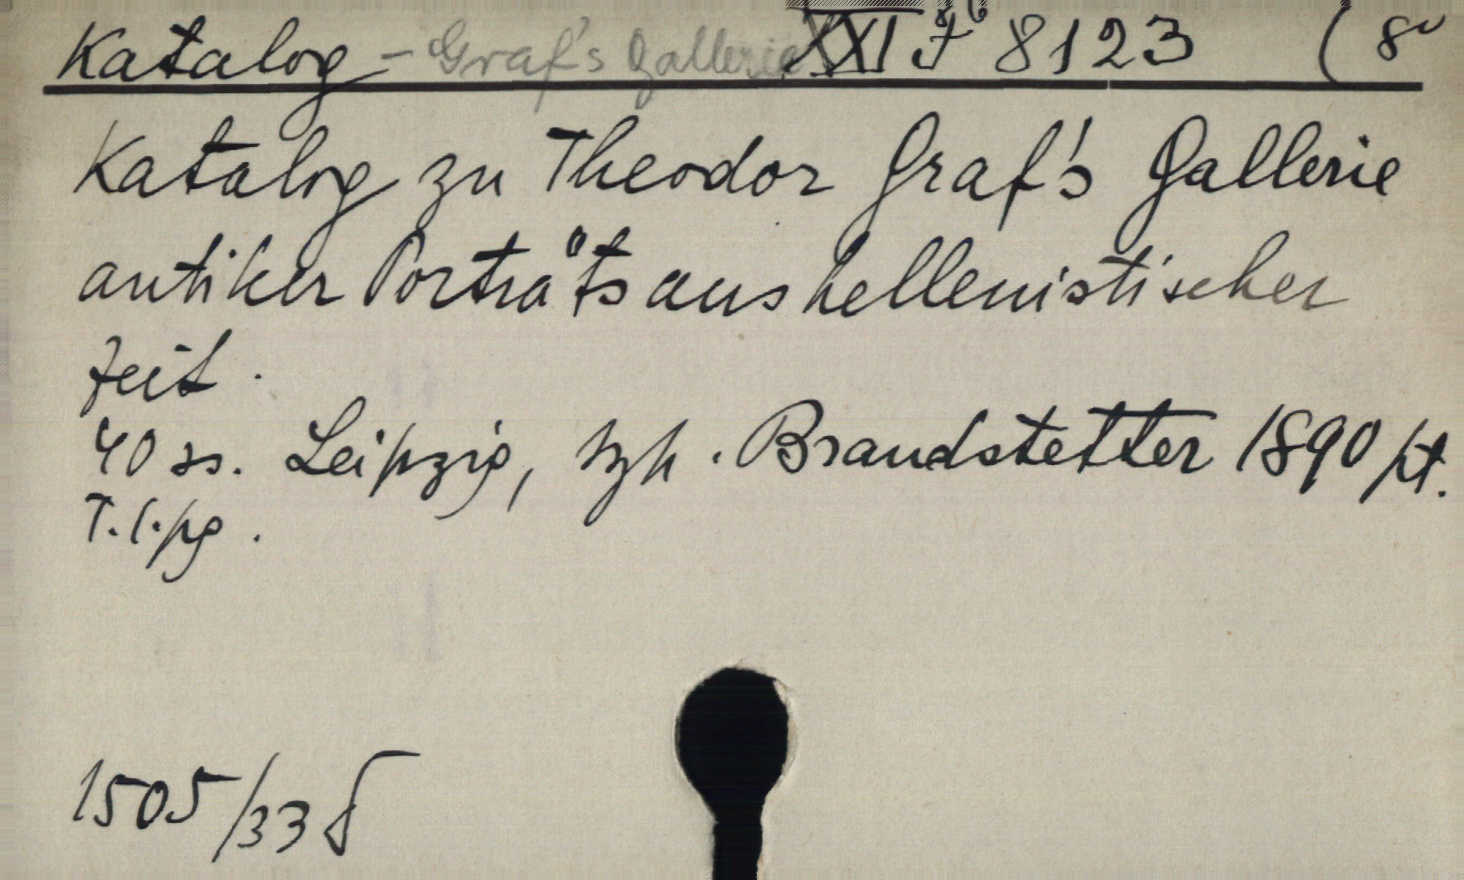 Katalog - Graf's Gallerie XXI J 8123 (8°
Katalog zu Theodor Graf's Gallerie
antiker Porträts aus hellenistischer
Zeit.
40 ss. Leipzig, tzp. Brandstetter 1890 pt.
T. l. pg.
1505/33